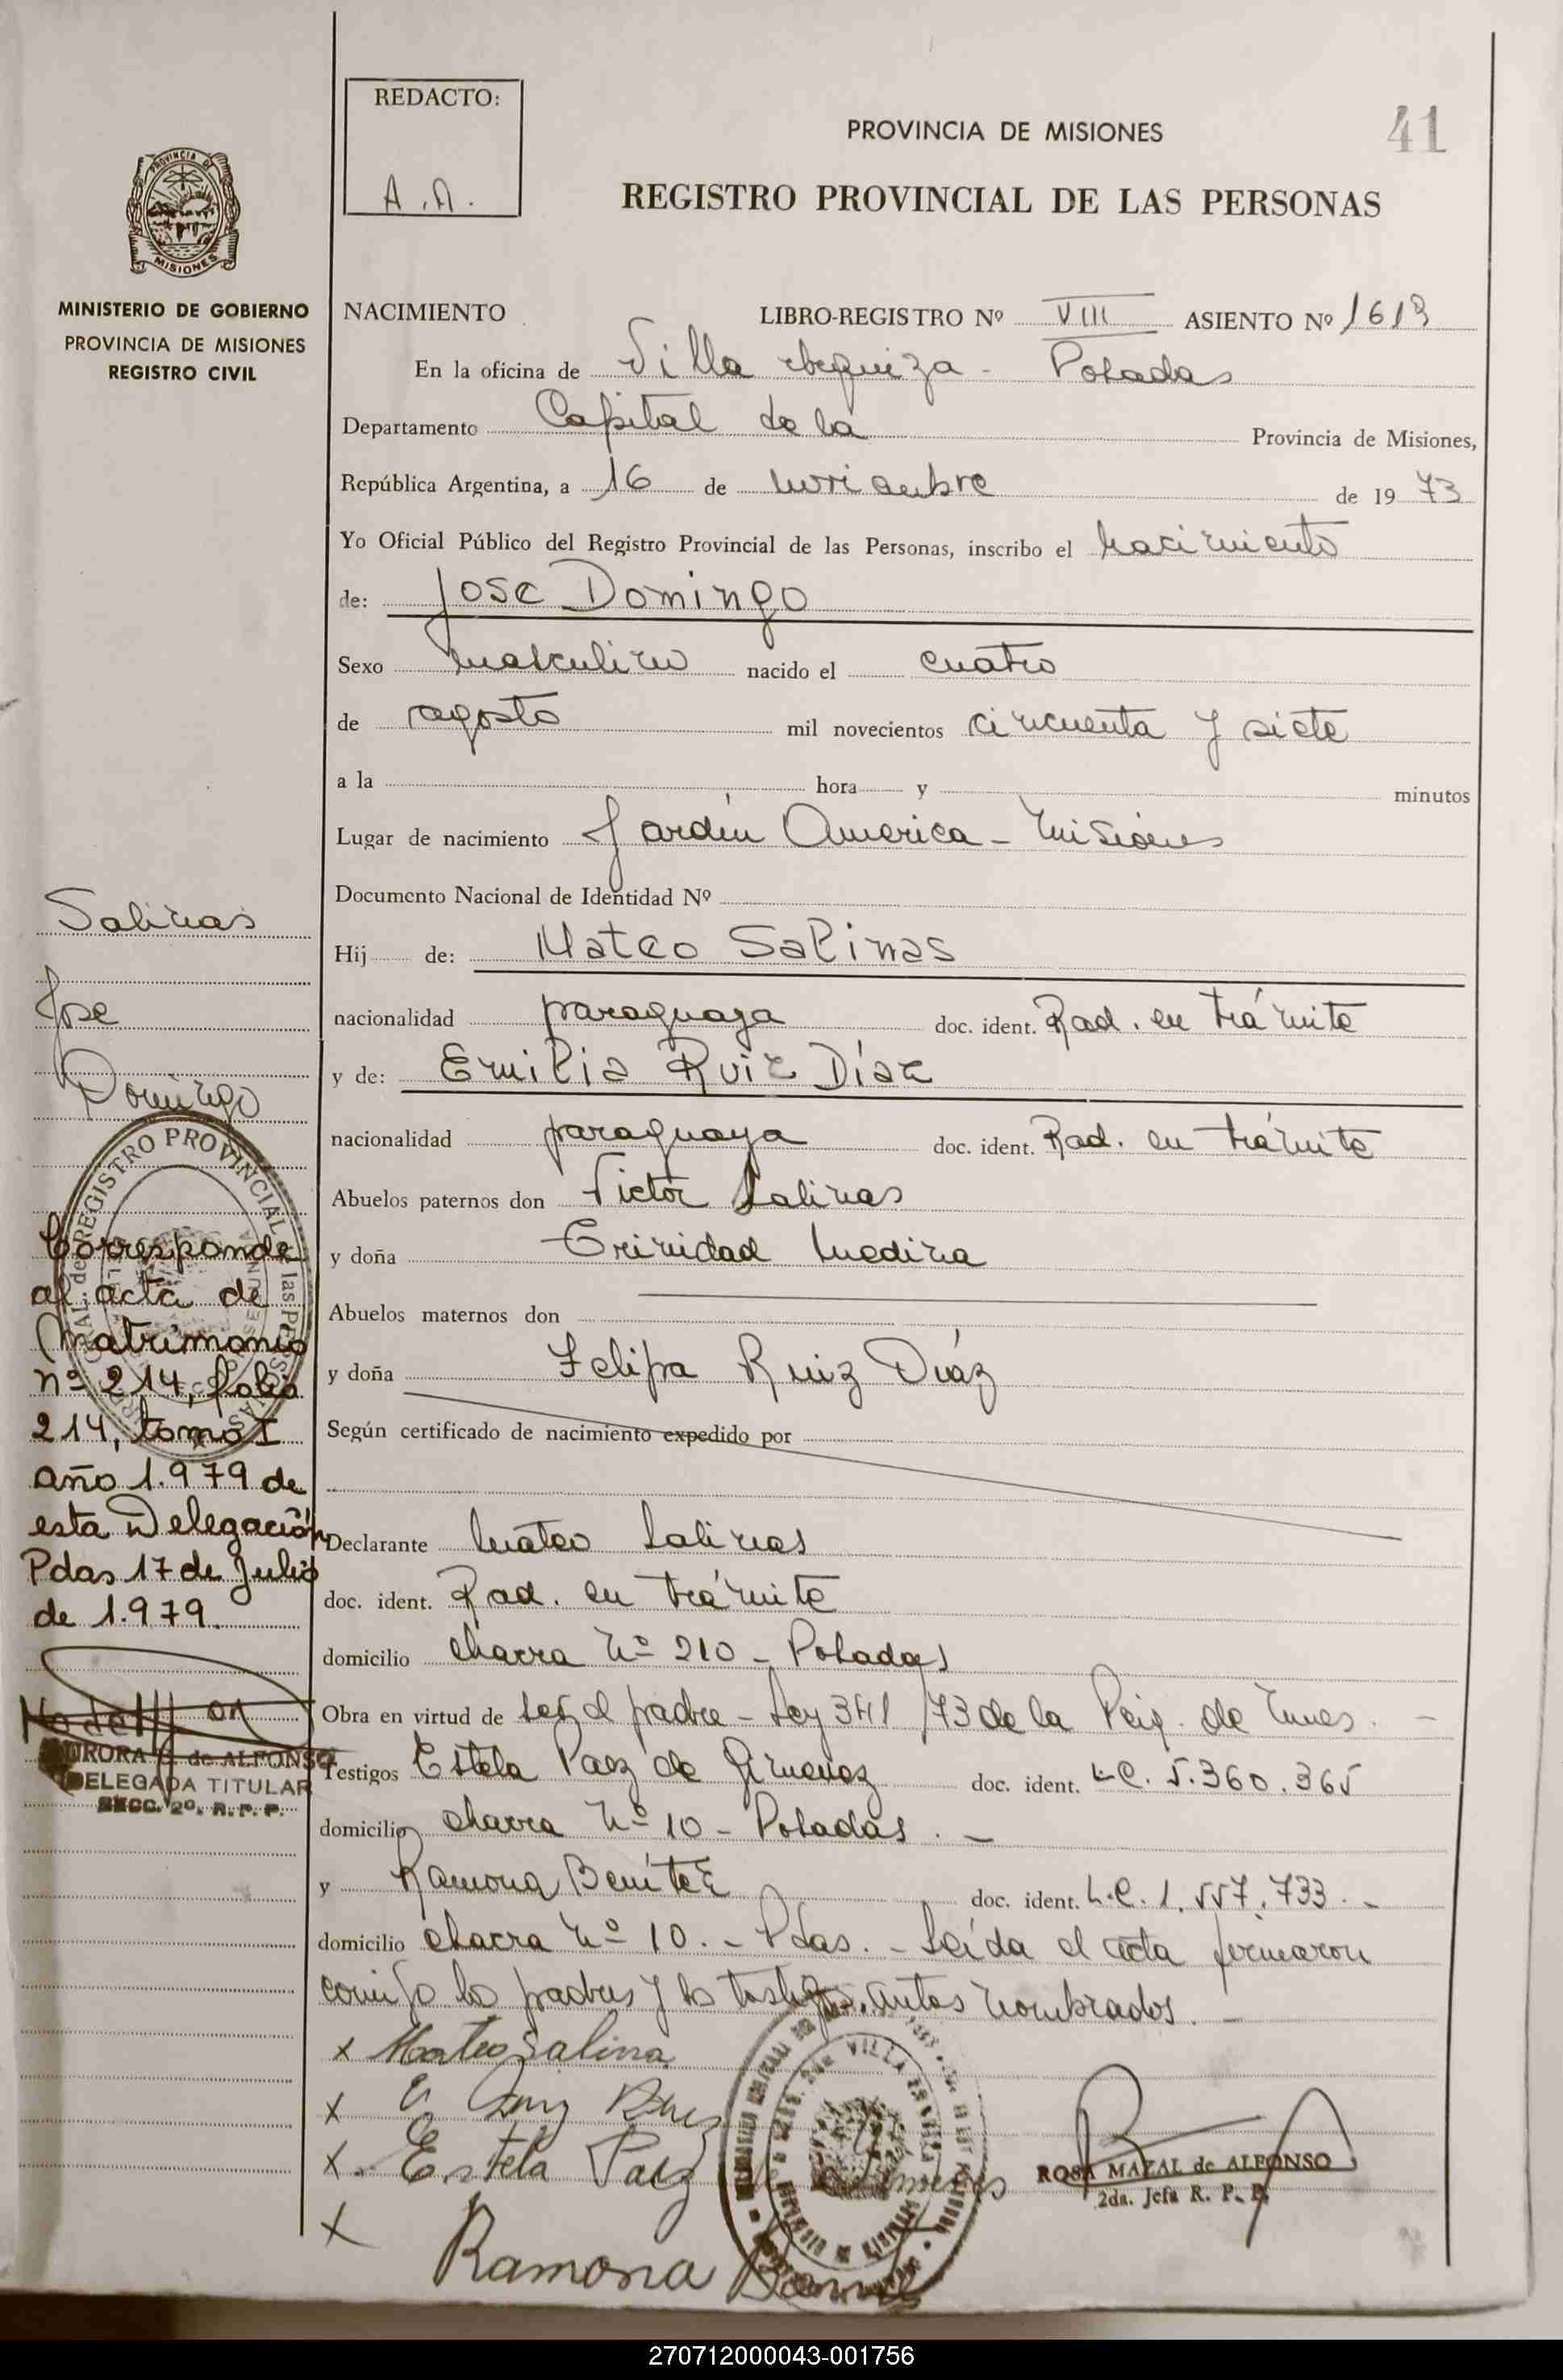 REDACTO:
A.A.
PROVINCIA DE MISIONES
41
REGISTRO PROVINCIAL DE LAS PERSONAS
PROVINCIA DE
MISIONES
MINISTERIO DE GOBIERNO
PROVINCIA DE MISIONES
REGISTRO CIVIL
NACIMIENTO LIBRO-REGISTRO Nº VIII ASIENTO Nº 1619
En la oficina de Villa Posadas
Departamento Capital de la Provincia de Misiones,
República Argentina, a 16 de noviembre de 1973
Yo Oficial Público del Registro Provincial de las Personas, inscribo el nacimiento
de: Jose Domingo
Sexo masculino nacido el cuatro
de agosto mil novecientos cincuenta y siete
a la hora y minutos
Lugar de nacimiento Jardín America - Misiones
Documento Nacional de Identidad Nº
Hij de: Mateo Salinas
nacionalidad paraguaya doc. ident. Rad. en trámite
y de: Emilia Ruiz Díaz
nacionalidad paraguaya doc. ident. Rad. en trámite
Abuelos paternos don Victor Salinas
y doña Trinidad Medina
Abuelos maternos don
y doña Felipa Ruiz Díaz
Según certificado de nacimiento expedido por
Declarante Mateo Salinas
doc. ident. Rad. en trámite
domicilio chacra Nº 210 - Posadas
Obra en virtud de ser el padre - Ley 341/73 de la
Testigos Estela Paez de Gimenez doc. ident. L.C. 5.360.365
domicilio chacra Nº 10 - Posadas. -
y Ramona Benítez doc. ident. L.C. 1.557.733. -
domicilio chacra Nº 10. - Pdas. - Leída el acta firmaron
conmigo los padres y los testigos antes nombrados. -
x Mateo Salina
x
x. Estela Paez
x
Ramona
ROSA MAZAL de ALFONSO
2da. Jefa R. P. P.
Salinas
Jose
Domingo
REGISTRO PROVINCIAL de las PERSONAS
Corresponde
al acta de
Matrimonio
nº 214, folio
214, tomo I
año 1.979 de
esta Delegación
Pdas 17 de Julio
de 1.979.
AURORA de ALFONSO
DELEGADA TITULAR
SECC. 2º. R. P. P.
270712000043-001756